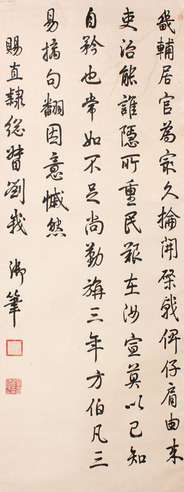 畿輔居官為最久掄開棨戟俾仔肩由來
吏治能誰隱所重民艱在汝宣莫以已知
自矜也常如不足尚勤旃三年方伯凡三
易摛句翻因意憾然
賜直隸總督劉峩
御筆